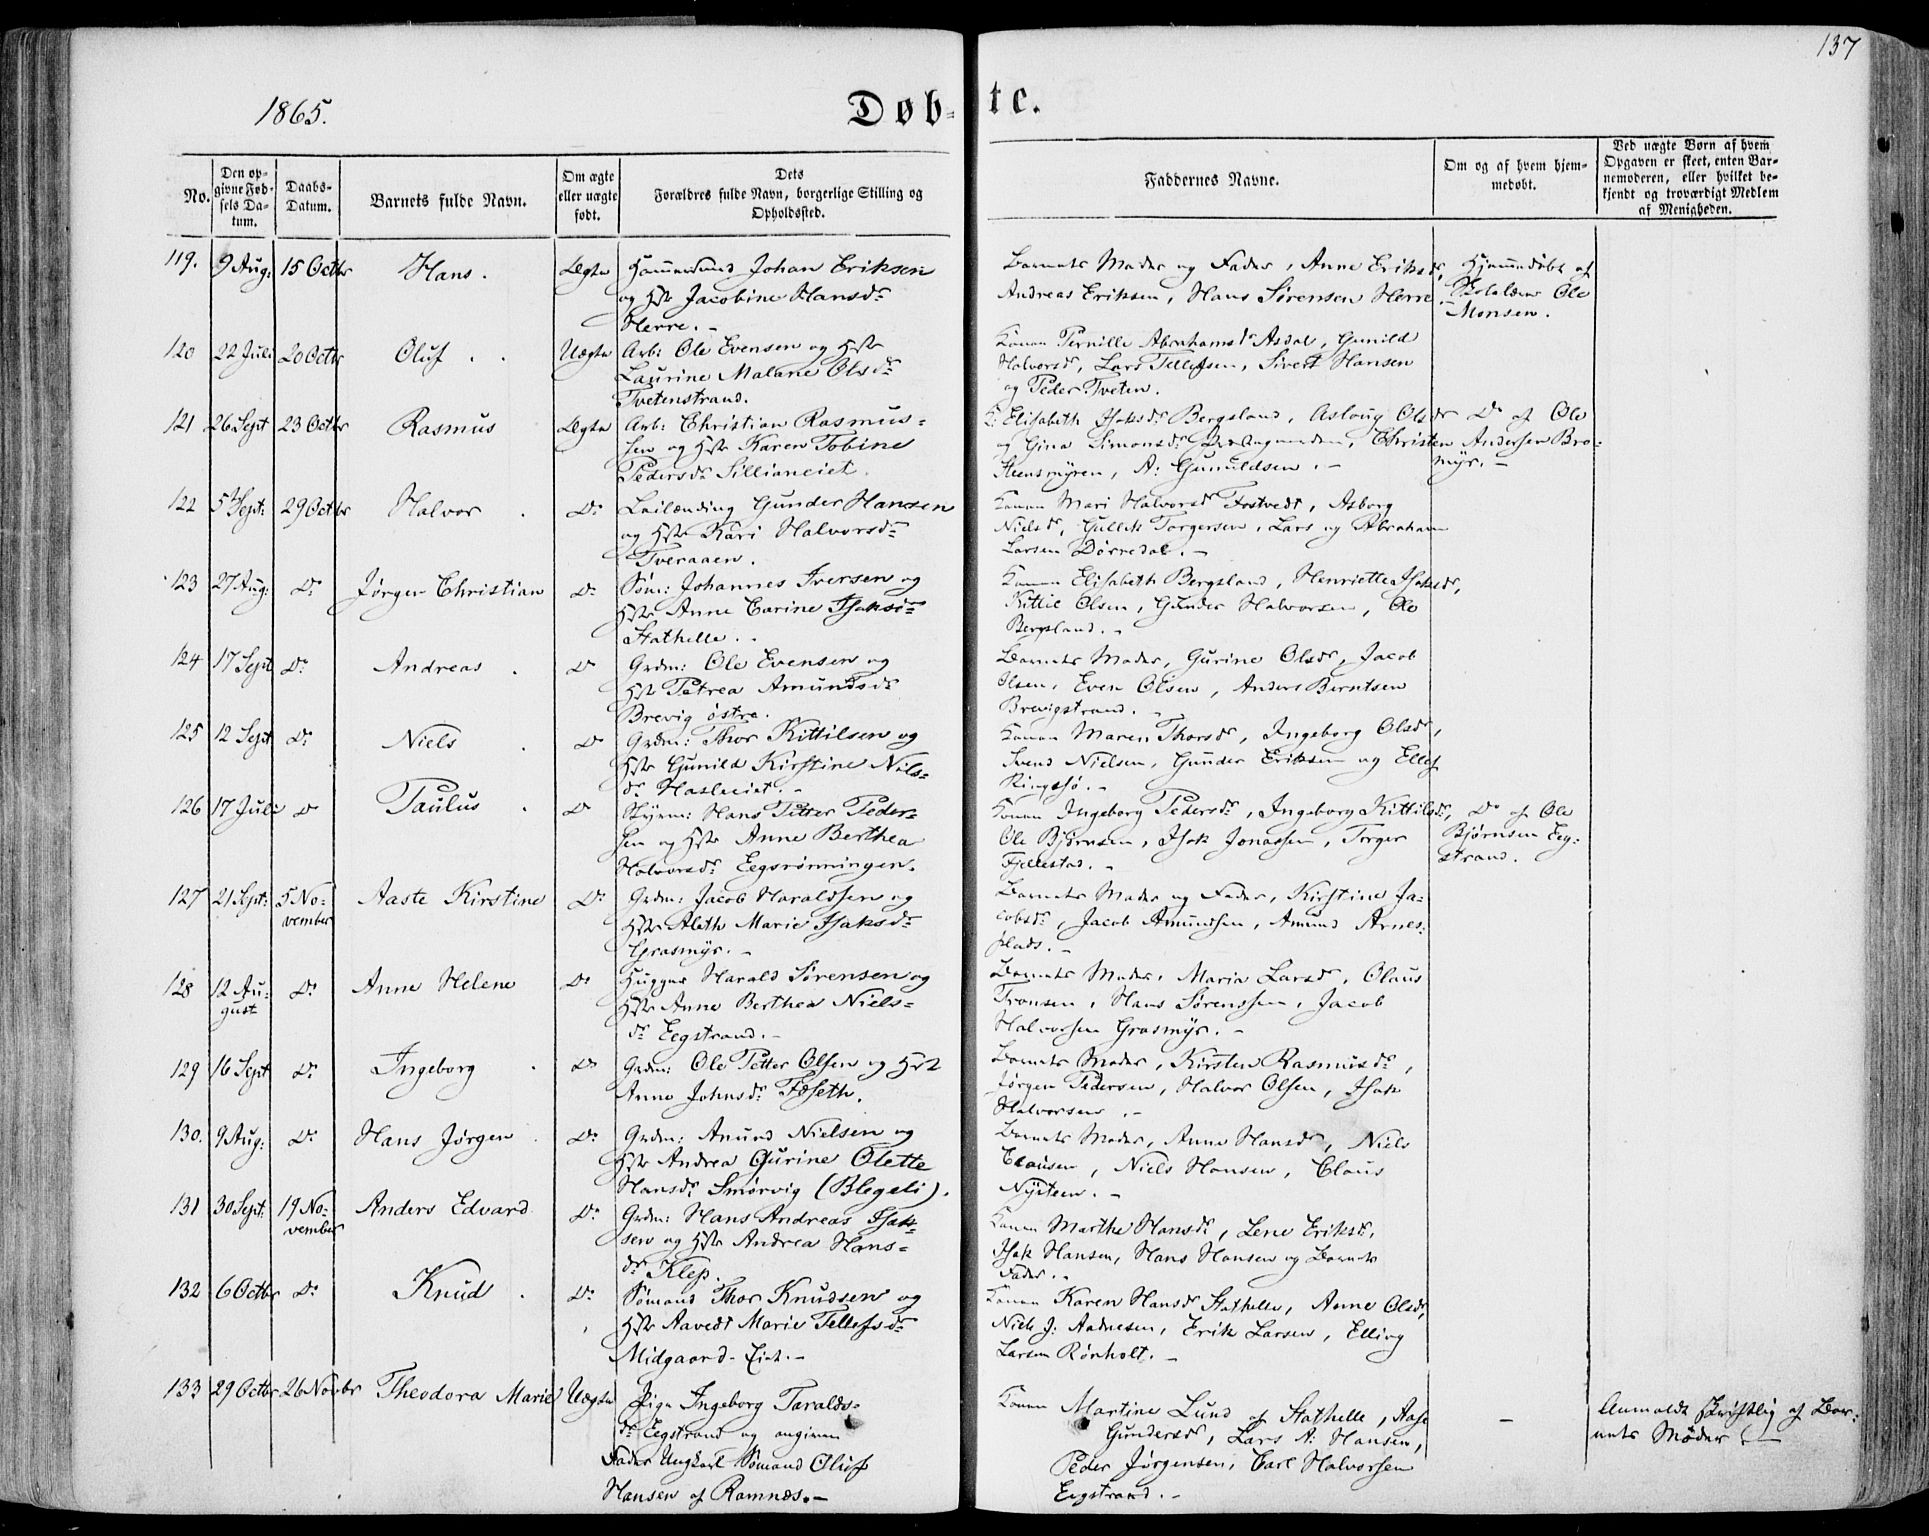 137
1865.
Døb-
te.
No.
Den op-
givne Fød-
sels Da-
tum.
Daabs-
Datum.
Barnets fulde Navn.
Om ægte
eller uægte
født.
Dets
Forældres fulde Navn, borgerlige Stilling og
Opholdssted.
Faddernes Navne.
Om og af hvem hjem-
medøbt.
Ved uægte Børn af hvem
Opgaven er skeet, enten Bar-
nemoderen, eller hvilket be-
kjendt og troværdigt Medlem
af Menigheden.
119. 9 Aug: 15 Octbr Hans. Ægte Johan Eriksen
og Hst Jacobine Hansdr
Herre. -
Barnets Moder og Fader, Anne Eriksdr,
Andreas Eriksen, Hans Sørensen Herre. -
Hjemmedøbt af
Ole
Monsen.
120 22 Juli 20 Octbr Oluf. Uægte Arb: Ole Evensen og Hst
Laurine Malane Olsdr
Tvetenstrand.
Konen Pernille Abrahamsdr Asdal, Gunild
Halvorsdr, Lars Tellefsen, Sivert Hansen
og Peder Tveten.
121 26 Sept 23 Octbr Rasmus Ægte Arb: Christian Rasmus-
sen og Hst Karen Tobine
Pedersdr Sillianeiet.
K: Elisabeth Isaksdr Bergsland, Aslaug Olsdr
og Gina Simonsdr, Christen
Steensmyren, A: Gunuldsen. -
Do af Ole
Andersen Bro-
myr. -
122 5 Sept: 29 Octbr Halvor. Do Leilænding Gunder Hansen
og Hst Kari Halvorsdr
Tveraaen.
Konen Mari Halvorsdr Fostvedt, Asborg
Nielsdr, Gullik Torgersen, Lars og Abraham
Larsen Dørredal. -
123 27 Aug: Do Jørgen Christian Do Søm: Johannes Iversen og
Hst Anne Carine Isaksdr
Stathelle. -
Konen Elisabeth Bergsland, Henriette Isaksdr,
Kittil Olsen, Gunder Halvorsen, Ole
Bergsland. -
124 17 Sept Do Andreas. Do Grdm: Ole Evensen og
Hst Petrea Amundsdr
Brevig østre.
Barnets Moder, Gurine Olsdr, Jacob
Olsen, Even Olsen, Anders Berntsen
Brevigstrand. -
125 12 Sept Do Niels. Do Grdm: Thor Kittilsen og
Hst Gunild Kirstine Niels-
dr Hasleeiet. -
Konen Maren Thorsdr, Ingeborg Olsdr,
Svend Nielsen, Gunder Eriksen og Ellef
Ringsjø. -
126 17 Juli Do Paulus. Do Styrm: Hans Petter Peder-
sen og Hst Anne Berthea
Halvorsdr Eegsrønningen.
Konen Ingeborg Pedersdr, Ingeborg Kittilsdr,
Ole Bjørnsen, Isak Jonassen, Torger
Fjellestad. -
Do af Ole
Bjørnsen Eeg-
strand.
127 21 Sept: 5 No-
vember Aaste Kirstine Do Grdm: Jacob Haraldsen og
Hst Aleth Marie Isaksdr
Grasmyr. -
Barnets Moder og Fader, Kirstine Ja-
cobsdr, Jacob Amundsen, Amund Arnes-
plads. -
128 12 Au-
gust Do Anne Helene Do Hugger Harald Sørensen og
Hst Anne Berthea Niels-
dr Eegstrand. -
Barnets Moder, Maria Larsdr, Olaus
Tronsen, Hans Sørenssen, Jacob
Halvorsen Grasmyr. -
129 16 Sept Do Ingeborg. Do Grdm: Ole Petter Olsen og Hst
Anne Johnsdr Fosseth.
Barnets Moder, Kirsten Rasmusdr,
Jørgen Pedersen, Halvor Olsen, Isak
Halvorsen. -
130. 9 Aug: Do Hans Jørgen. Do Grdm: Anund Nielsen og
Hst Andrea Gurine Olette
Hansdr Smørvig (Blegeli).
Barnets Moder, Anne Hansdr, Niels
Clausen, Niels Hansen, Claus
Nysteen. -
131 30 Sept: 19 No-
vember Anders Edvard Do Grdm: Hans Andreas Isak-
sen og Hst Andrea Hans-
dr Klep.
Konen Marthe Hansdr, Lene Eriksdr,
Isak Hansen, Hans Hansen og Barnets
Fader. -
132 6 Octbr Do Knud. Do Sømand Thor Knudsen og
Hst Aavedt Marie Tellefsdr
Midgaard-Eiet. -
Konen Karen Hansdr Stathelle, Anne Olsdr,
Niels J: Aadnesen, Erik Larsen, Elling
Larsen Rønholt. -
133 29 Octbr 26 Novbr Theodora Marie Uægte Pige Ingeborg Taralds-
dr Eegstrand og angiven
Fader Ungkarl Sømand Oluf
Hansen af Ramnæs. -
Konen Martine Lund af Stathelle, Aase
Gundersdr, Lars A: Hansen,
Peder Jørgensen, Carl Halvorsen
Eegstrand. -
-
Anmeldt skriftlig af Bar-
nets Moder. -